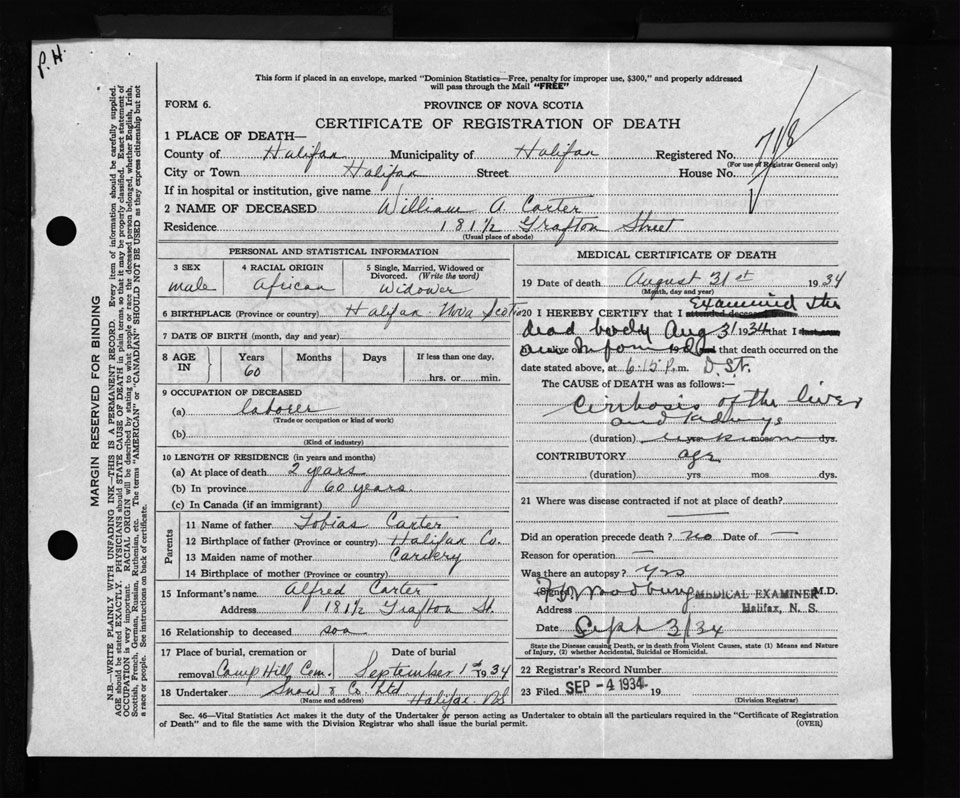 P.H.
This form if placed in an envelope, marked "Dominion Statistics—Free, penalty for improper use, $300," and properly addressed
will pass through the Mail "FREE"
FORM 6. PROVINCE OF NOVA SCOTIA
CERTIFICATE OF REGISTRATION OF DEATH
1 PLACE OF DEATH—
County of Halifax Municipality of Halifax Registered No. 718
(For use of Registrar General only)
City or Town Halifax Street House No.
If in hospital or institution, give name
2 NAME OF DECEASED William A. Carter
Residence 181½ Grafton Street
(Usual place of abode)
PERSONAL AND STATISTICAL INFORMATION
3 SEX male
4 RACIAL ORIGIN African
5 Single, Married, Widowed or Divorced. (Write the word) Widower
6 BIRTHPLACE (Province or country) Halifax Nova Scotia
7 DATE OF BIRTH (month, day and year)
8 AGE IN Years 60 Months Days If less than one day, hrs. or min.
9 OCCUPATION OF DECEASED
(a) laborer
(Trade or occupation or kind of work)
(b)
(Kind of industry)
10 LENGTH OF RESIDENCE (in years and months)
(a) At place of death 2 years
(b) In province 60 years.
(c) In Canada (if an immigrant)
Parents
11 Name of father Tobias Carter
12 Birthplace of father (Province or country) Halifax Co.
13 Maiden name of mother
14 Birthplace of mother (Province or country)
15 Informant's name Alfred Carter
Address 181½ Grafton St.
16 Relationship to deceased son
17 Place of burial, cremation or removal Camp Hill Cem. Date of burial September 1st 1934
18 Undertaker Snow & Co. Ltd Halifax NS
(Name and address)
MEDICAL CERTIFICATE OF DEATH
19 Date of death August 31st 1934
(Month, day and year)
20 I HEREBY CERTIFY that I attended deceased from Examined the
dead body Aug 31 1934 that I last saw
am informed that death occurred on the
date stated above, at 6.15 P.m. D.S.T.
The CAUSE OF DEATH was as follows:—
Cirrhosis of the liver
and kidneys
(duration) unknown yrs mos dys.
CONTRIBUTORY age
(duration) yrs mos dys.
21 Where was disease contracted if not at place of death?
Did an operation precede death? no Date of —
Reason for operation —
Was there an autopsy? Yes
(Signed) MEDICAL EXAMINER M.D.
Address Halifax, N. S.
Date Sept 3/34
State the Disease causing Death, or in death from Violent Causes, state (1) Means and Nature
of Injury, (2) whether Accidental, Suicidal or Homicidal.
22 Registrar's Record Number
23 Filed SEP - 4 1934 19
(Division Registrar)
Sec. 46—Vital Statistics Act makes it the duty of the Undertaker or person acting as Undertaker to obtain all the particulars required in the "Certificate of Registration
of Death" and to file the same with the Division Registrar who shall issue the burial permit. (OVER)
MARGIN RESERVED FOR BINDING
N.B.—WRITE PLAINLY WITH UNFADING INK—THIS IS A PERMANENT RECORD. Every item of information should be carefully supplied.
AGE should be stated EXACTLY. PHYSICIANS should STATE CAUSE OF DEATH in plain terms, so that it may be properly classified. Exact statement of
OCCUPATION is very important. RACIAL ORIGIN will be described by stating to what people or race the deceased person belonged, whether English, Irish,
Scottish, French, German, Russian, Ruthenian, etc. The terms "AMERICAN" or "CANADIAN" SHOULD NOT BE USED as they express citizenship but not
a race or people. See instructions on back of certificate.